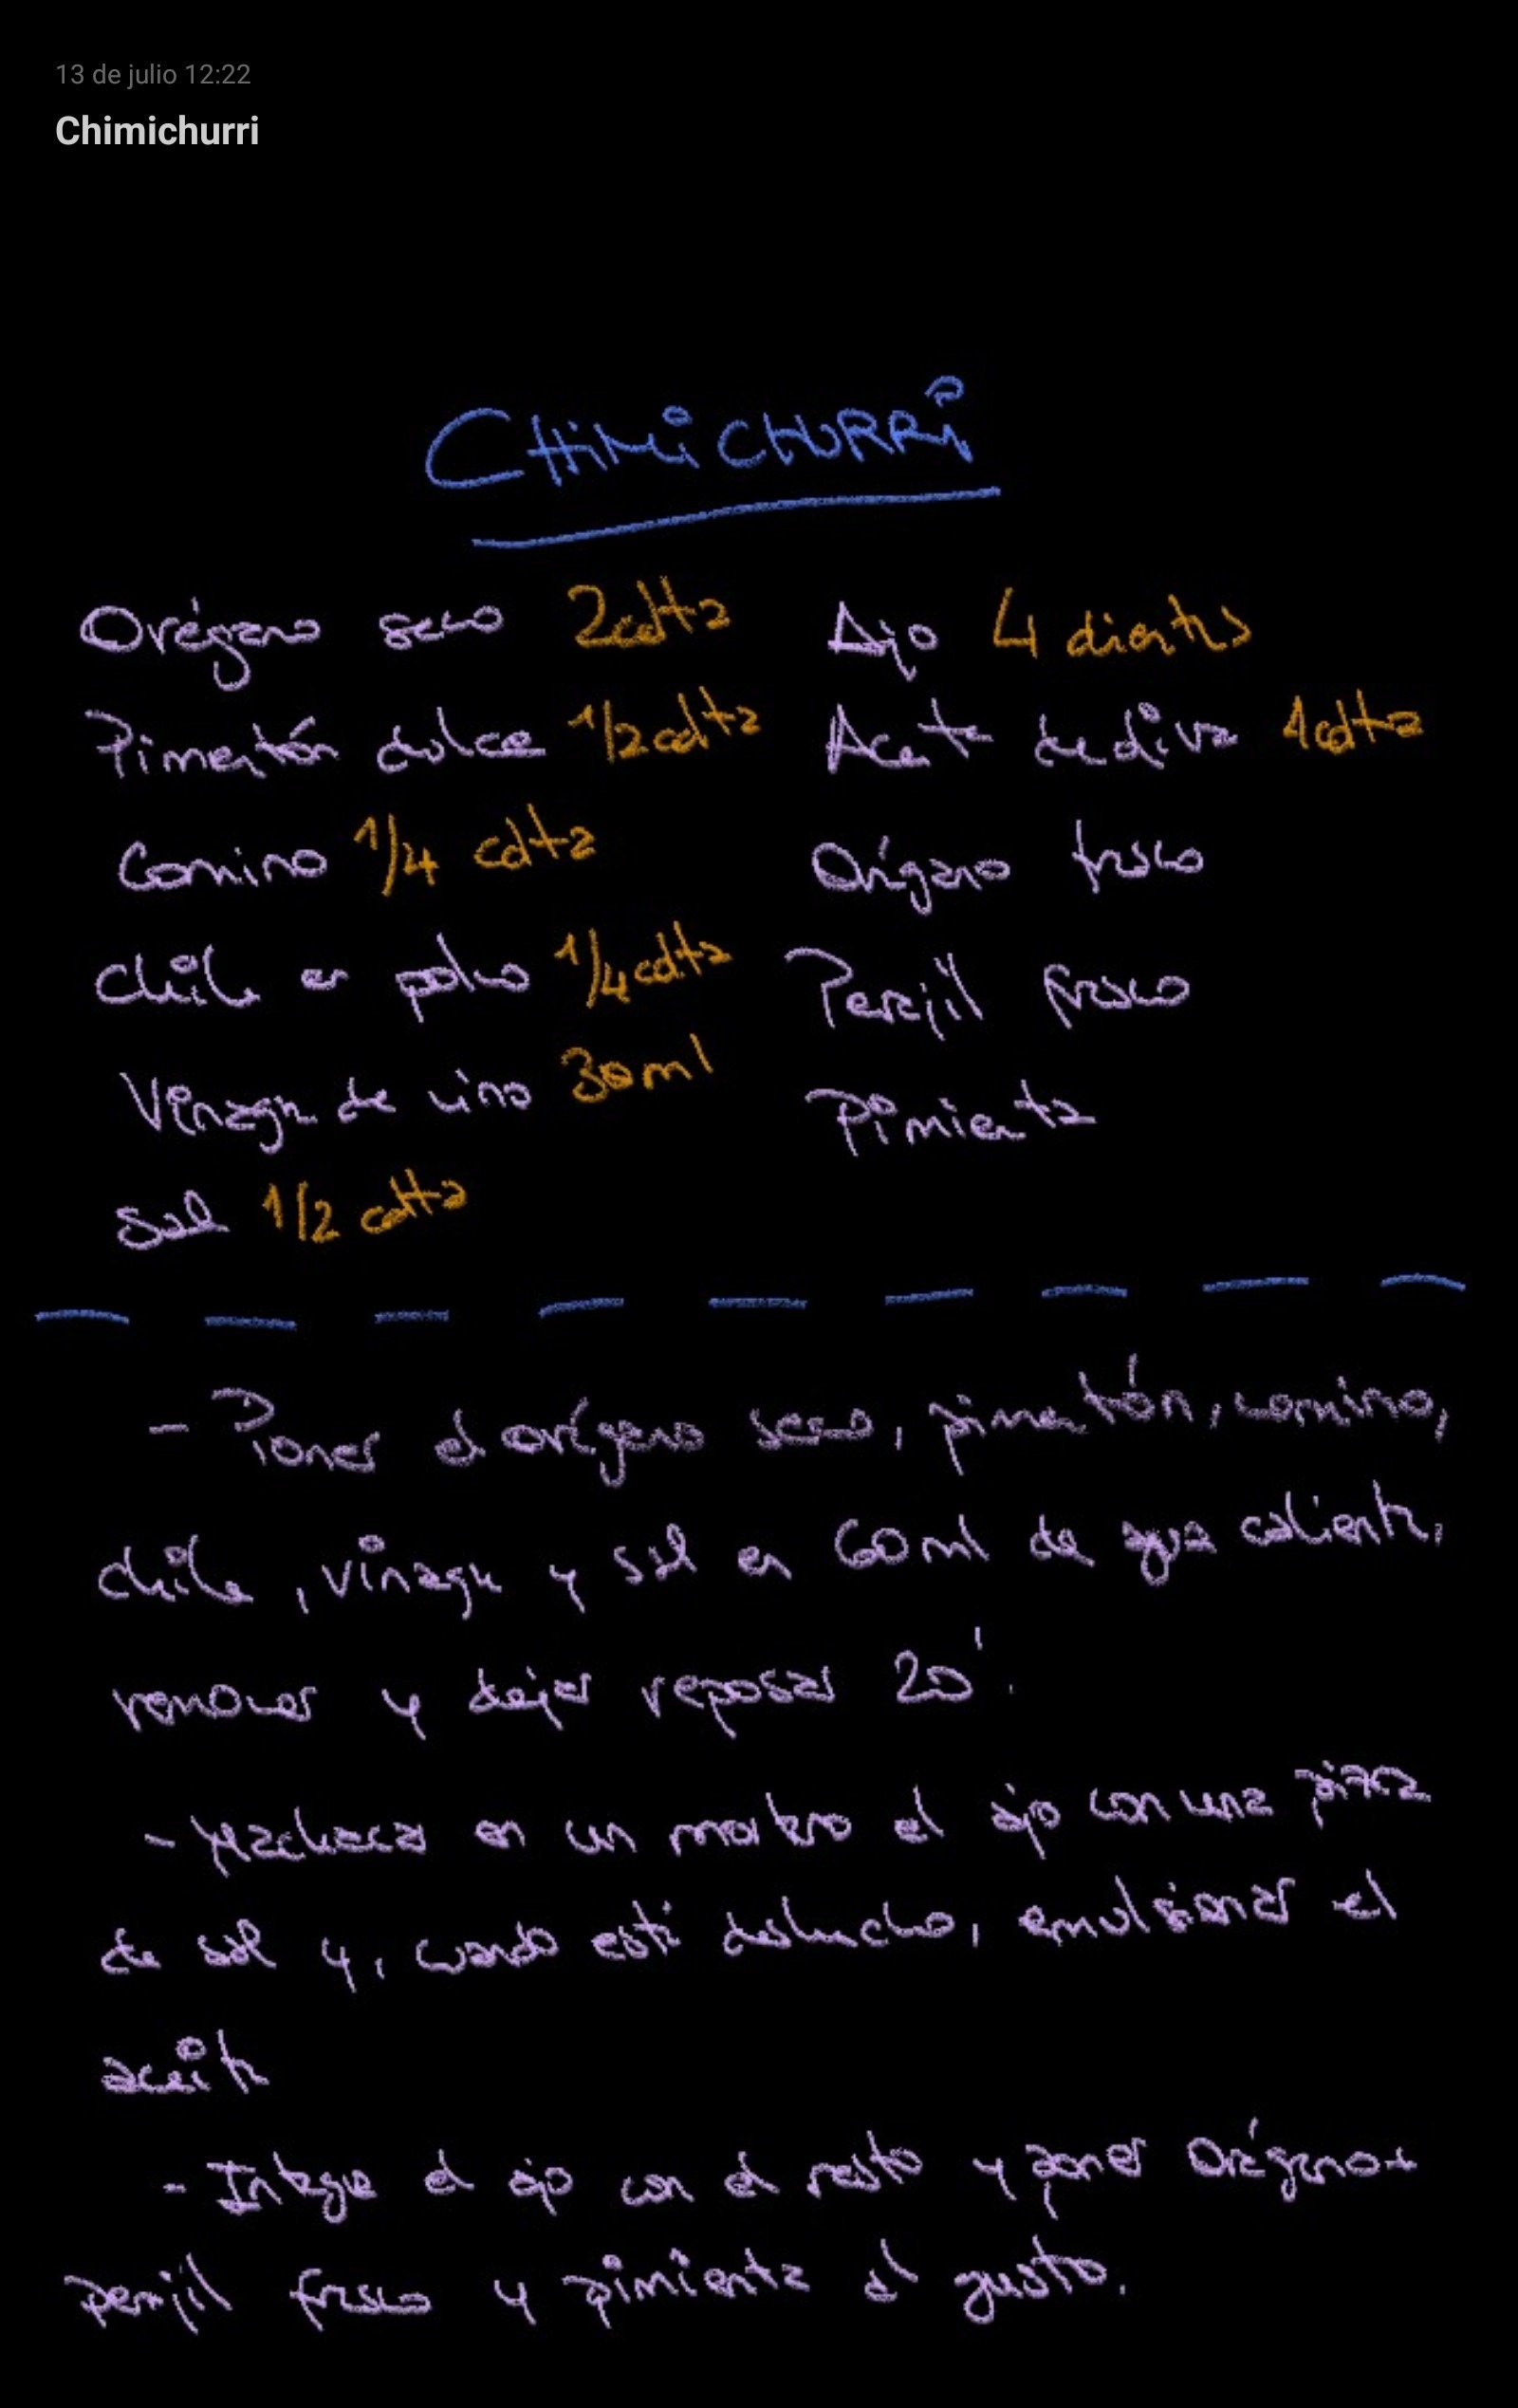 13 de julio 12:22
Chimichurri
CHiMiCHURRi
Orégano seco 2cdta
Pimentón dulce 1/2cdta
Comino 1/4 cdta
Chile en polvo 1/4cdta
Vinagre de vino 30ml
Sal 1/2 cdta
Ajo 4 dientes
Aceite de oliva 1cdta
Orégano fresco
Perejil fresco
Pimienta
- Poner el orégano seco, pimentón, comino,
chile, vinagre y sal en 60ml de agua caliente,
remover y dejar reposar 20'.
- Machacar en un mortero el ajo con una pizca
de sal y, cuando esté deshecho, emulsionar el
aceite
- Integrar el ajo con el resto y poner Orégano +
perejil fresco y pimienta al gusto.